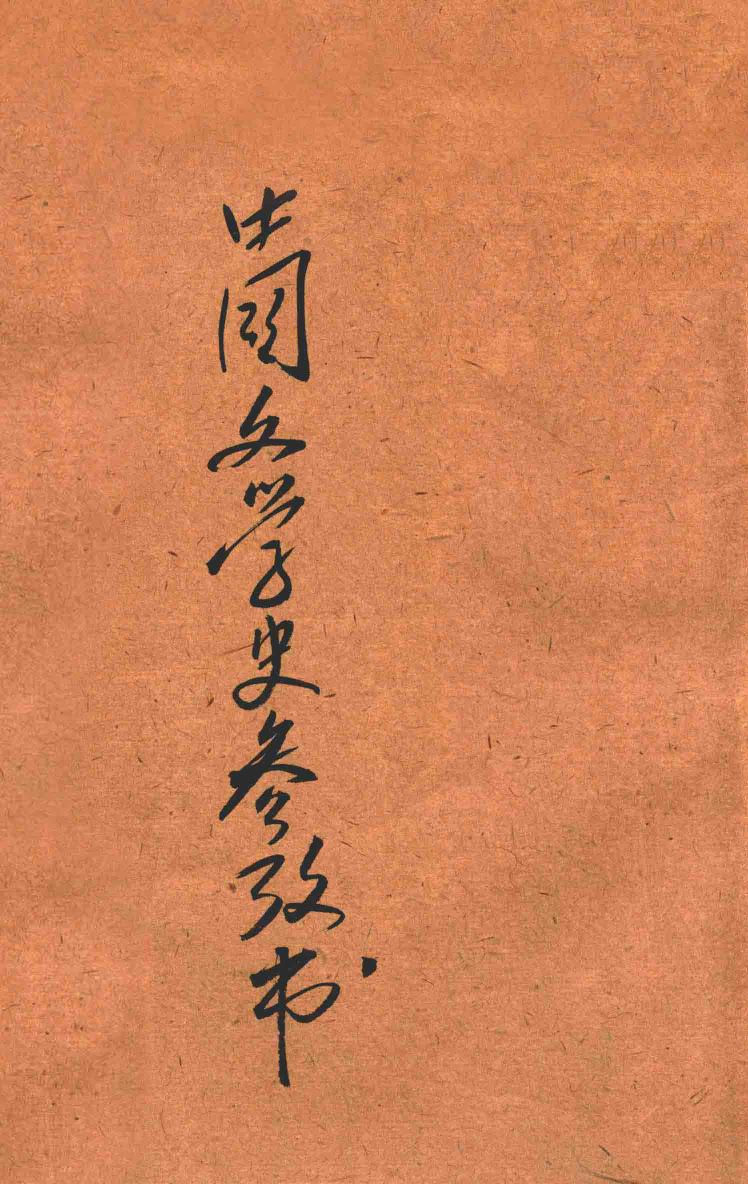 中国文学史参攷书